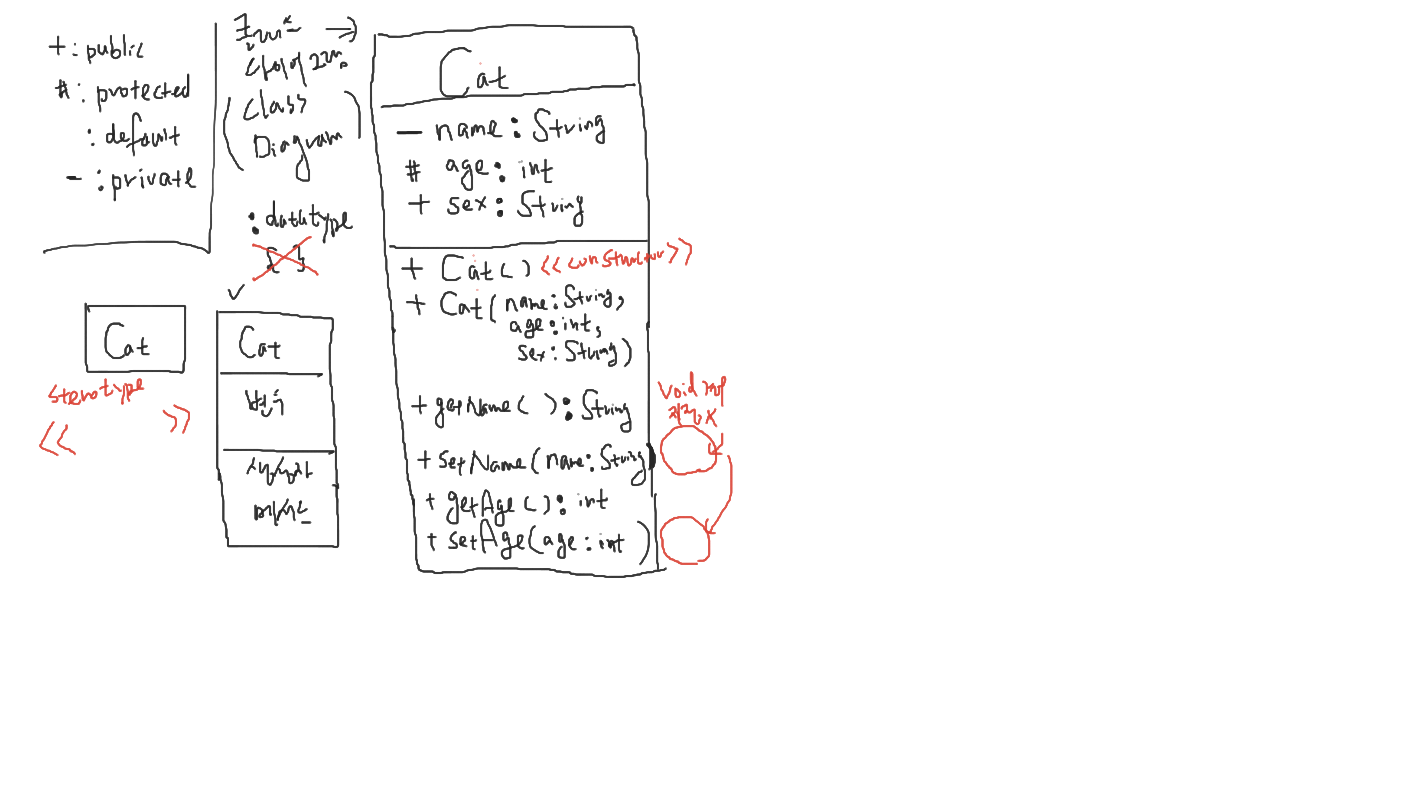 + : public
# : protected
: default
- : private
클래스 →
다이어그램
(class
Diagram)
: datatype
{ }
✓
Cat
sterotype
<< >>
Cat
변수
생성자
메서드
Cat
- name : String
# age : int
+ sex : String
+ Cat( ) <<constructor>>
+ Cat( name : String,
age : int,
sex : String )
+ getName( ) : String
+ setName( name : String )
+ getAge( ) : int
+ setAge( age : int )
void
X